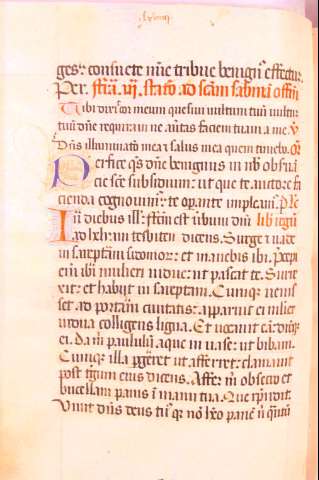 ges. consuete nr̄e tribue benignꝰ effectū.
Per. fer̄a. iij. stac̄o. ad sc̄am sabinā offm̄
Tibi dixit cor meum quesiui uultum tuū uultū
tuū dn̄e requiram ne auertas faciem tuam a me. V̄
Dn̄s illuminatō mea ⁊ salus mea quem timebo. or̄
Perfice qs̄ dn̄e benignus in nob̄ obseruā
cie sc̄e subsidium: ut que te auctore fa
cienda cognouimꝰ. te operante impleamꝰ. P.
In diebus ill. fc̄m est uerbum dn̄i lib̄ regū
ad helyam tesbiten dicens. Surge ⁊ uade
in sareptam sidonioꝝ: et manebis ibi. Precepi
eni ibi mulieri uidue: ut pascat te. Surre
xit: et habiit in sareptam. Cumqꝫ uenis
set ad portam ciuitatis: apparuit ei mulier
uidua colligens ligna. Et uocauit eā: dixitqꝫ
ei. Da m̄ paululū aque in uase: ut bibam.
Cumqꝫ illa pergeret ut afferret: clamauit
post tergum eius dicens. Affer m̄ obsecro et
bucellam panis in manu tua. Que rn̄dit.
Viuit dn̄s deus tuꝰ qꝛ nō hēo panē nisi quātū